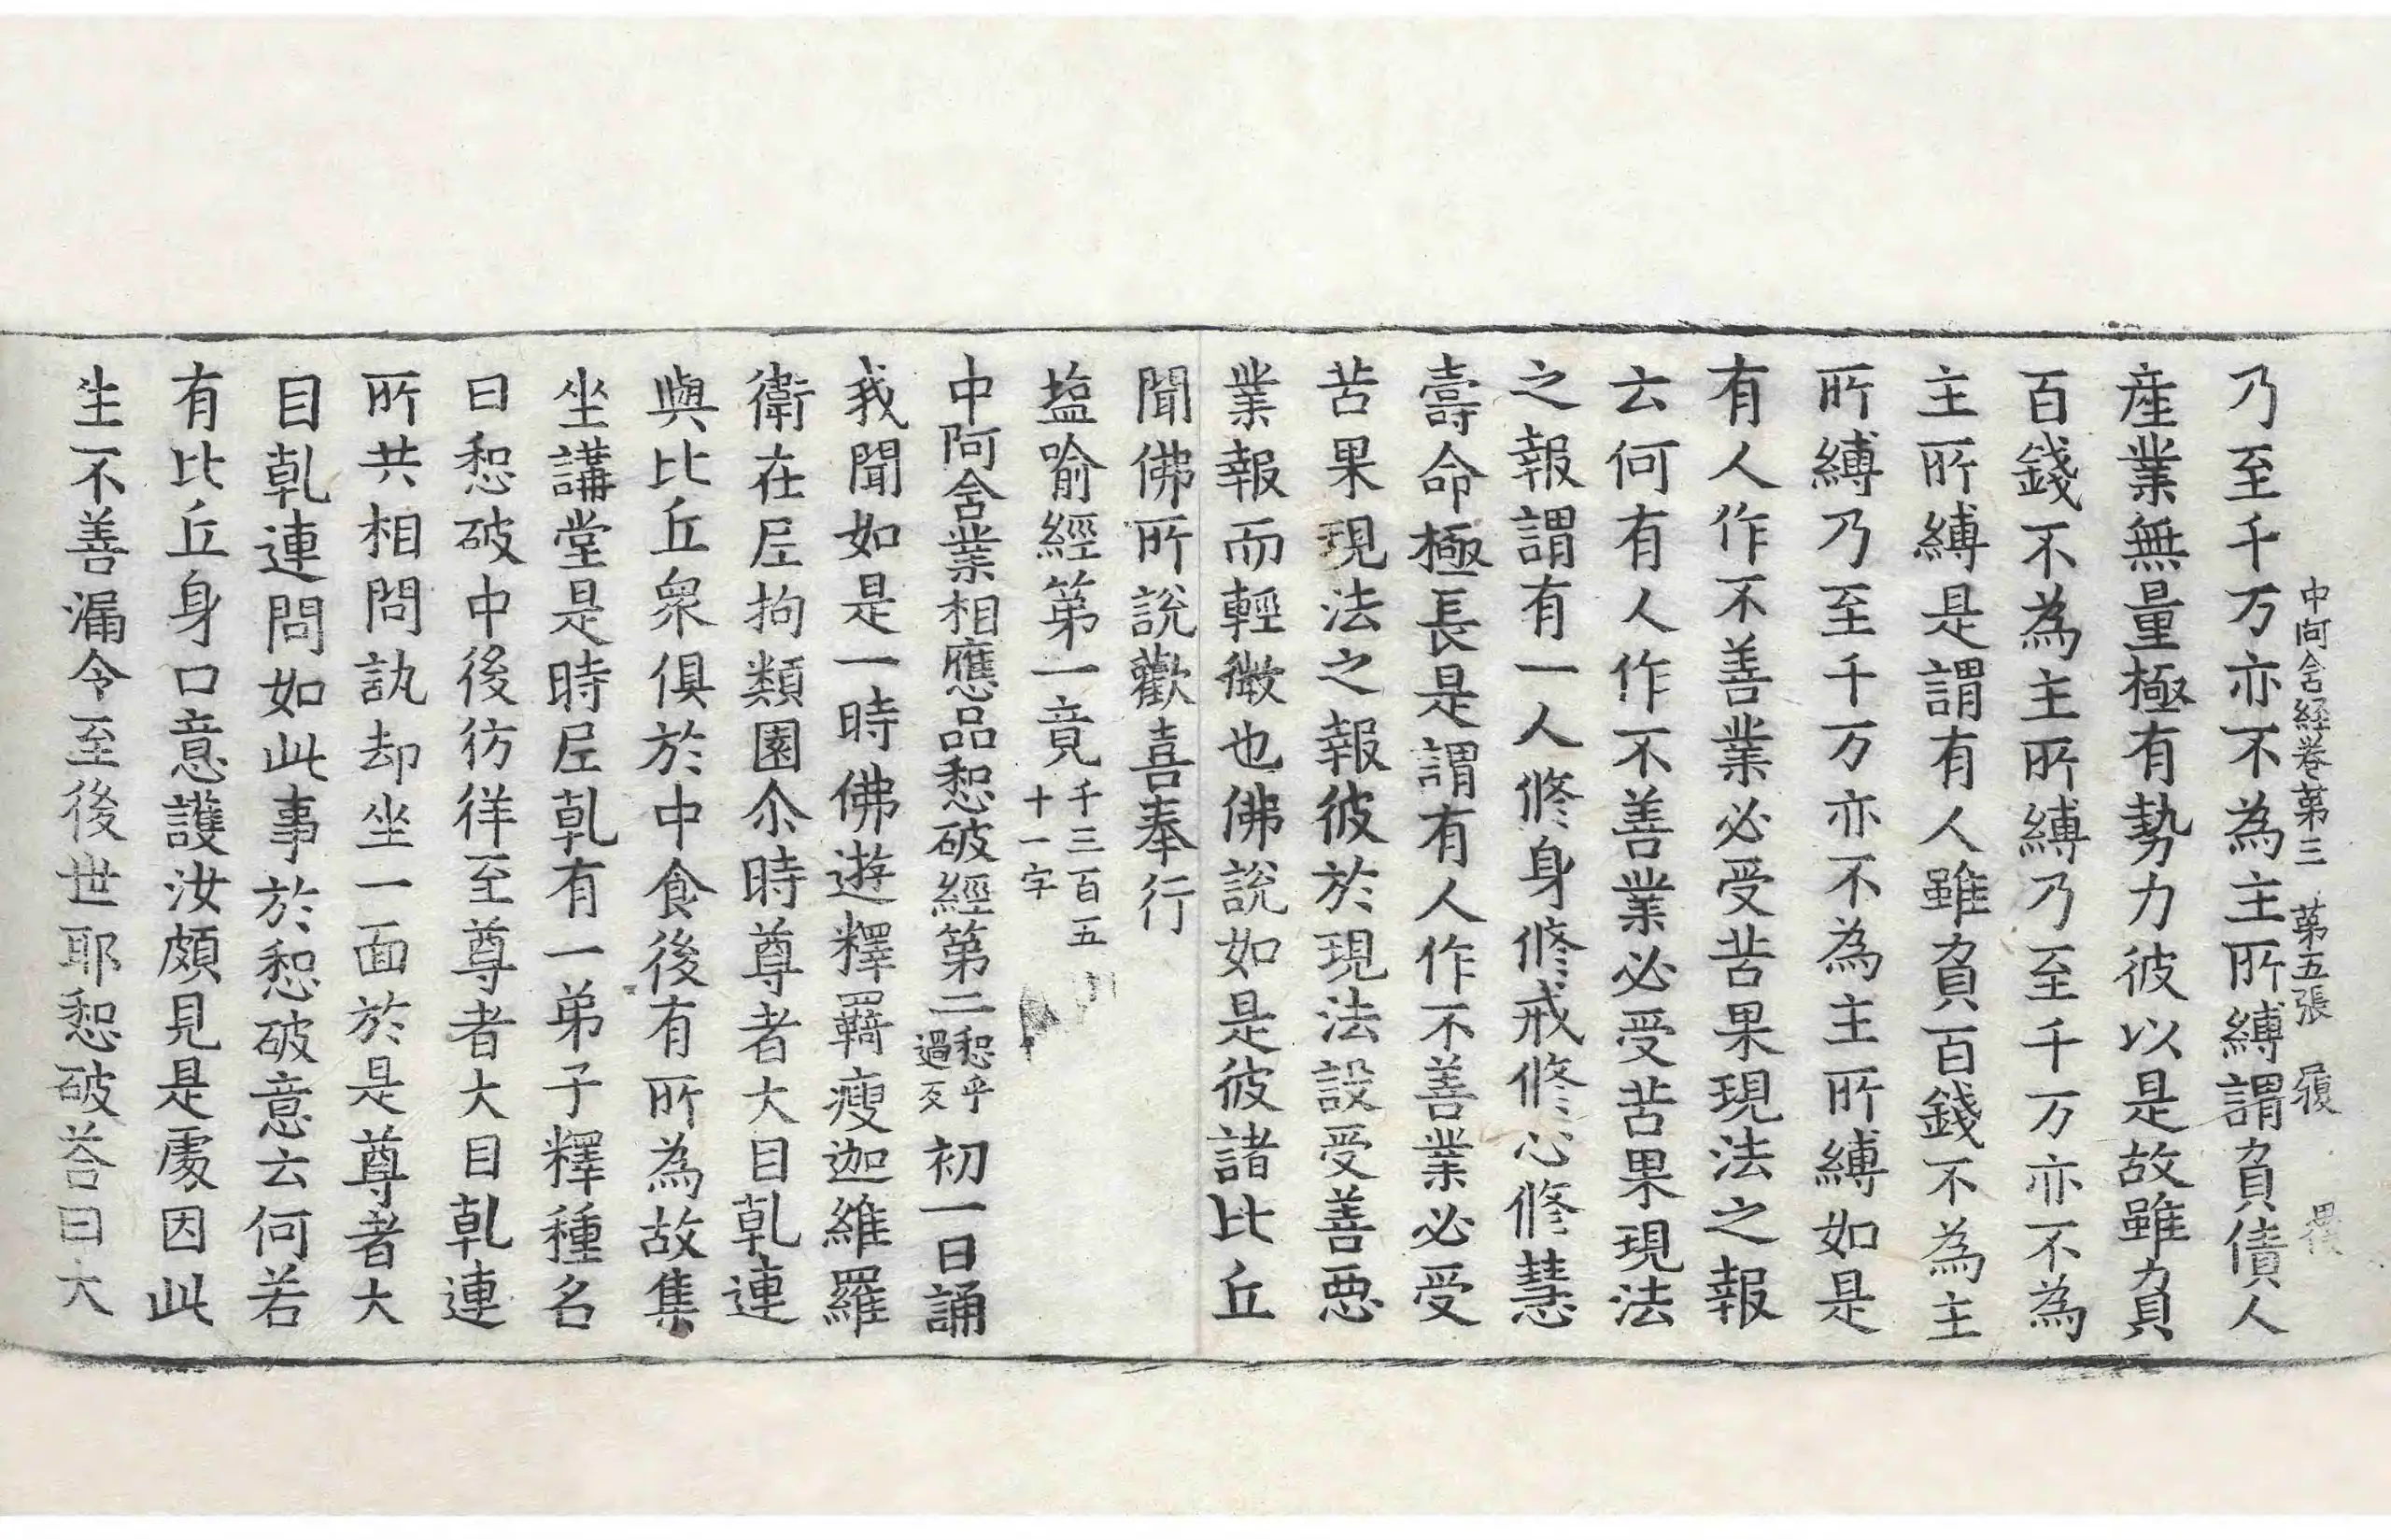 中阿含経卷苐三　苐五張　履
乃至千万亦不為主所縛謂負債人
産業無量極有勢力彼以是故雖負
百錢不為主所縛乃至千万亦不為
主所縛是謂有人雖負百錢不為主
所縛乃至千万亦不為主所縛如是
有人作不善業必受苦果現法之報
云何有人作不善業必受苦果現法
之報謂有一人修身修戒修心修慧
壽命極長是謂有人作不善業必受
苦果現法之報彼於現法設受善惡
業報而輕微也佛說如是彼諸比丘
聞佛所說歡喜奉行
塩喻經第一竟千三百五十一字
中阿含業相應品惒破經第二惒乎過反　初一日誦
我聞如是一時佛遊釋羇瘦迦維羅
衛在尼拘類園尒時尊者大目乹連
與比丘衆俱於中食後有所為故集
坐講堂是時尼乹有一弟子釋種名
曰惒破中後彷徉至尊者大目乹連
所共相問訊却坐一面於是尊者大
目乹連問如此事於惒破意云何若
有比丘身口意護汝頗見是處因此
生不善漏令至後世耶惒破荅曰大